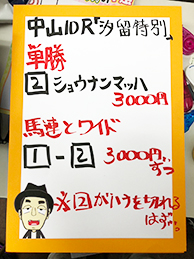 中山10R「汐留特別」
単勝
2 ショウナンマッハ
3000円
馬連とワイド
1-2 3000円ずつ
※2がハナを切れるはず…。